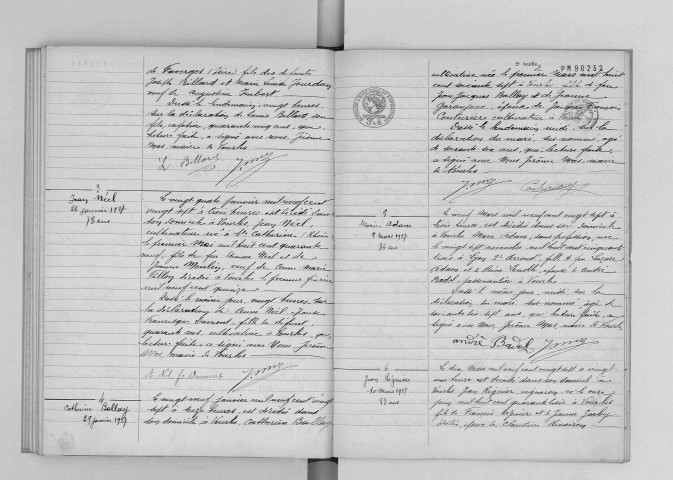 de Faverges (Isère) fils des défunts
Joseph Billard et Marie Louise Jourdan
veuf de Augustine Imbert
Dressé le lendemain, vingt heures,
sur la déclaration de Louis Billard son
fils, cafetier, quarante cinq ans, qui
lecture faite, a signé avec nous Jérôme
Mas, maire de Vourles
L. Billard J. Mas
3
Jean Néel
24 janvier 1927
78 ans
Le vingt quatre janvier mil neuf cent
vingt sept à trois heures est décédé dans
son domicile à Vourles, Jean Néel
cultivateur né à Ste Catherine (Rhône)
le premier Mai mil huit cent quarante
neuf, fils de feu Néel et de
Jeanne veuf de Anne Marie
décédée à Vourles le premier février
mil neuf cent quinze
Dressé le même jour, vingt heures sur
la déclaration de Néel, femme
Dumont, fille du défunt
quarante ans, cultivatrice à Vourles, qui,
lecture faite, a signé avec Nous Jérôme
Mas, maire de Vourles
Néel f. Dumont J. Mas
4
Catherine Ballay
29 janvier 1927
Le vingt neuf janvier mil neuf cent vingt
sept à seize heures, est décédée dans
son domicile à Vourles, Catherine Ballay
2e feuille
PM90253
cultivatrice, née le premier Mars mil huit
cent soixante sept à Vourles fille de feu
Jean Jacques Ballay et de Jeanne
épouse de Jacques François
Couturier cultivateur à Vourles
Dressé le lendemain midi, sur la
déclaration du mari, sus nommé, âgé
de soixante six ans, qui, lecture faite,
a signé avec Nous Jérôme Mas, maire
de Vourles
J. Mas
5
Marie Adam
9 mars 1927
74 ans
Le neuf Mars mil neuf cent vingt sept à
trois heures est décédée dans son domicile
à Vourles Marie Adam, sans profession, née
le vingt sept mil huit cent cinquante
trois à Lyon 2e arrond., fille de feu
Adam et de épouse de André
Badol, à Vourles
Dressé le même jour, midi, sur la
déclaration du mari, sus nommé, âgé de
soixante dix sept ans, qui, lecture faite, a
signé avec Nous, Jérôme Mas, maire de Vourles,
André Badol J. Mas
6
Jean Régnier
10 mars 1927
83 ans
Le dix Mars mil neuf cent vingt sept à vingt
une heures est décédé dans son domicile à
Vourles Jean Régnier né le onze
juin mil huit cent quarante trois à Vourles
fils de François Régnier et de Jeanne
décédés, époux de Claudine